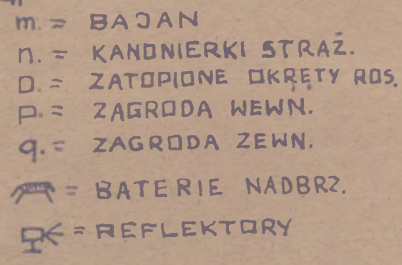 m. = BAJAN
n. = KANONIERKI STRAŻ.
o. = ZATOPIONE OKRĘTY ROS.
p. = ZAGRODA WEWN.
q. = ZAGRODA ZEWN.
= BATERIE NADBRZ.
= REFLEKTORY